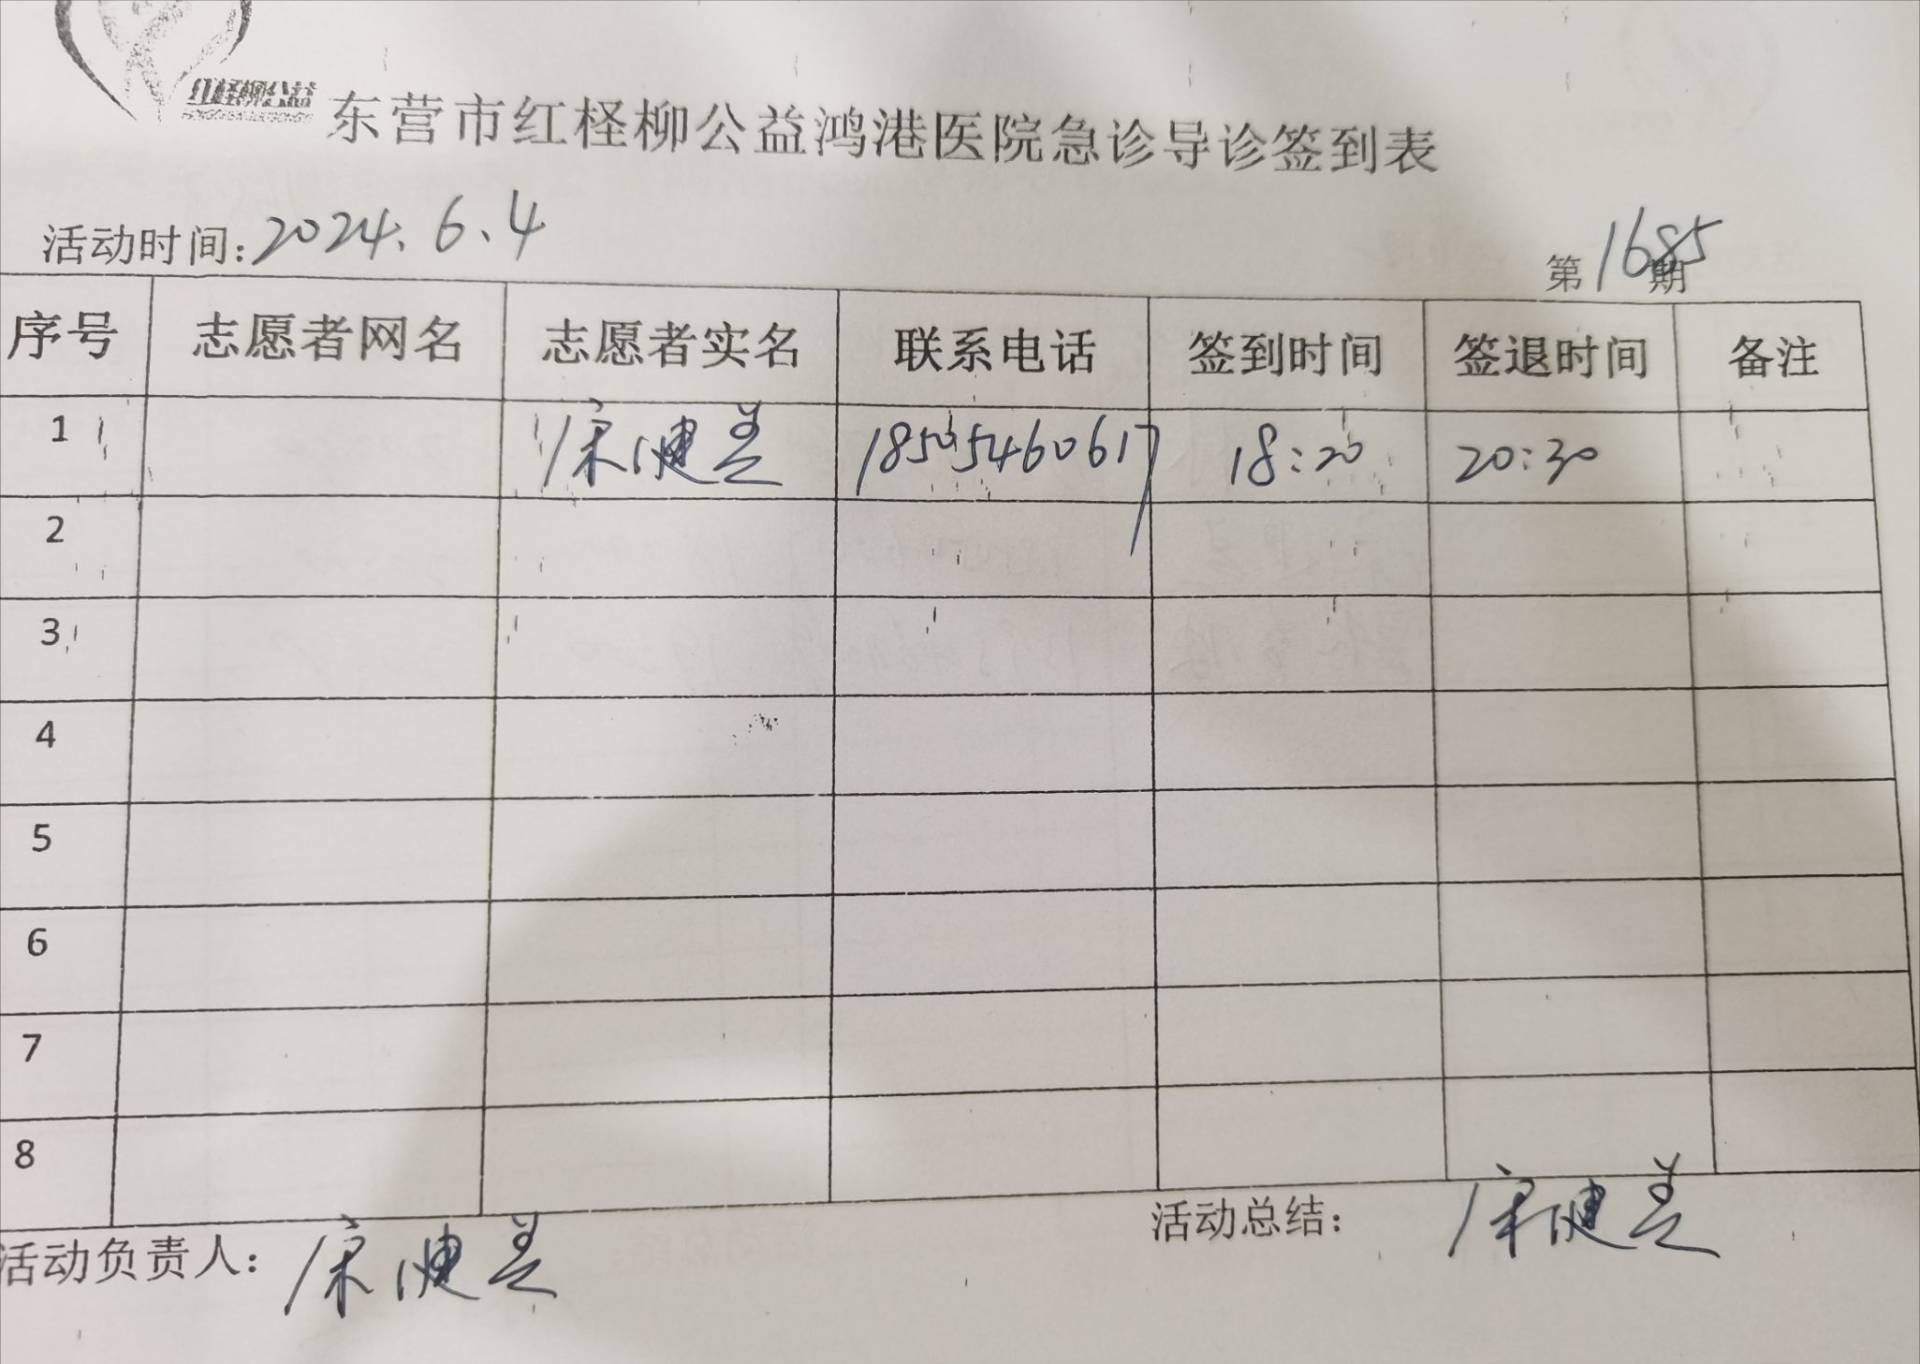 红柽柳公益
东营市红柽柳公益鸿港医院急诊导诊签到表
活动时间:2024.6.4
第1685期
序号 志愿者网名 志愿者实名 联系电话 签到时间 签退时间 备注
1 健 18505460617 18:20 20:30
2
3
4
5
6
7
8
活动负责人: 健
活动总结: 健